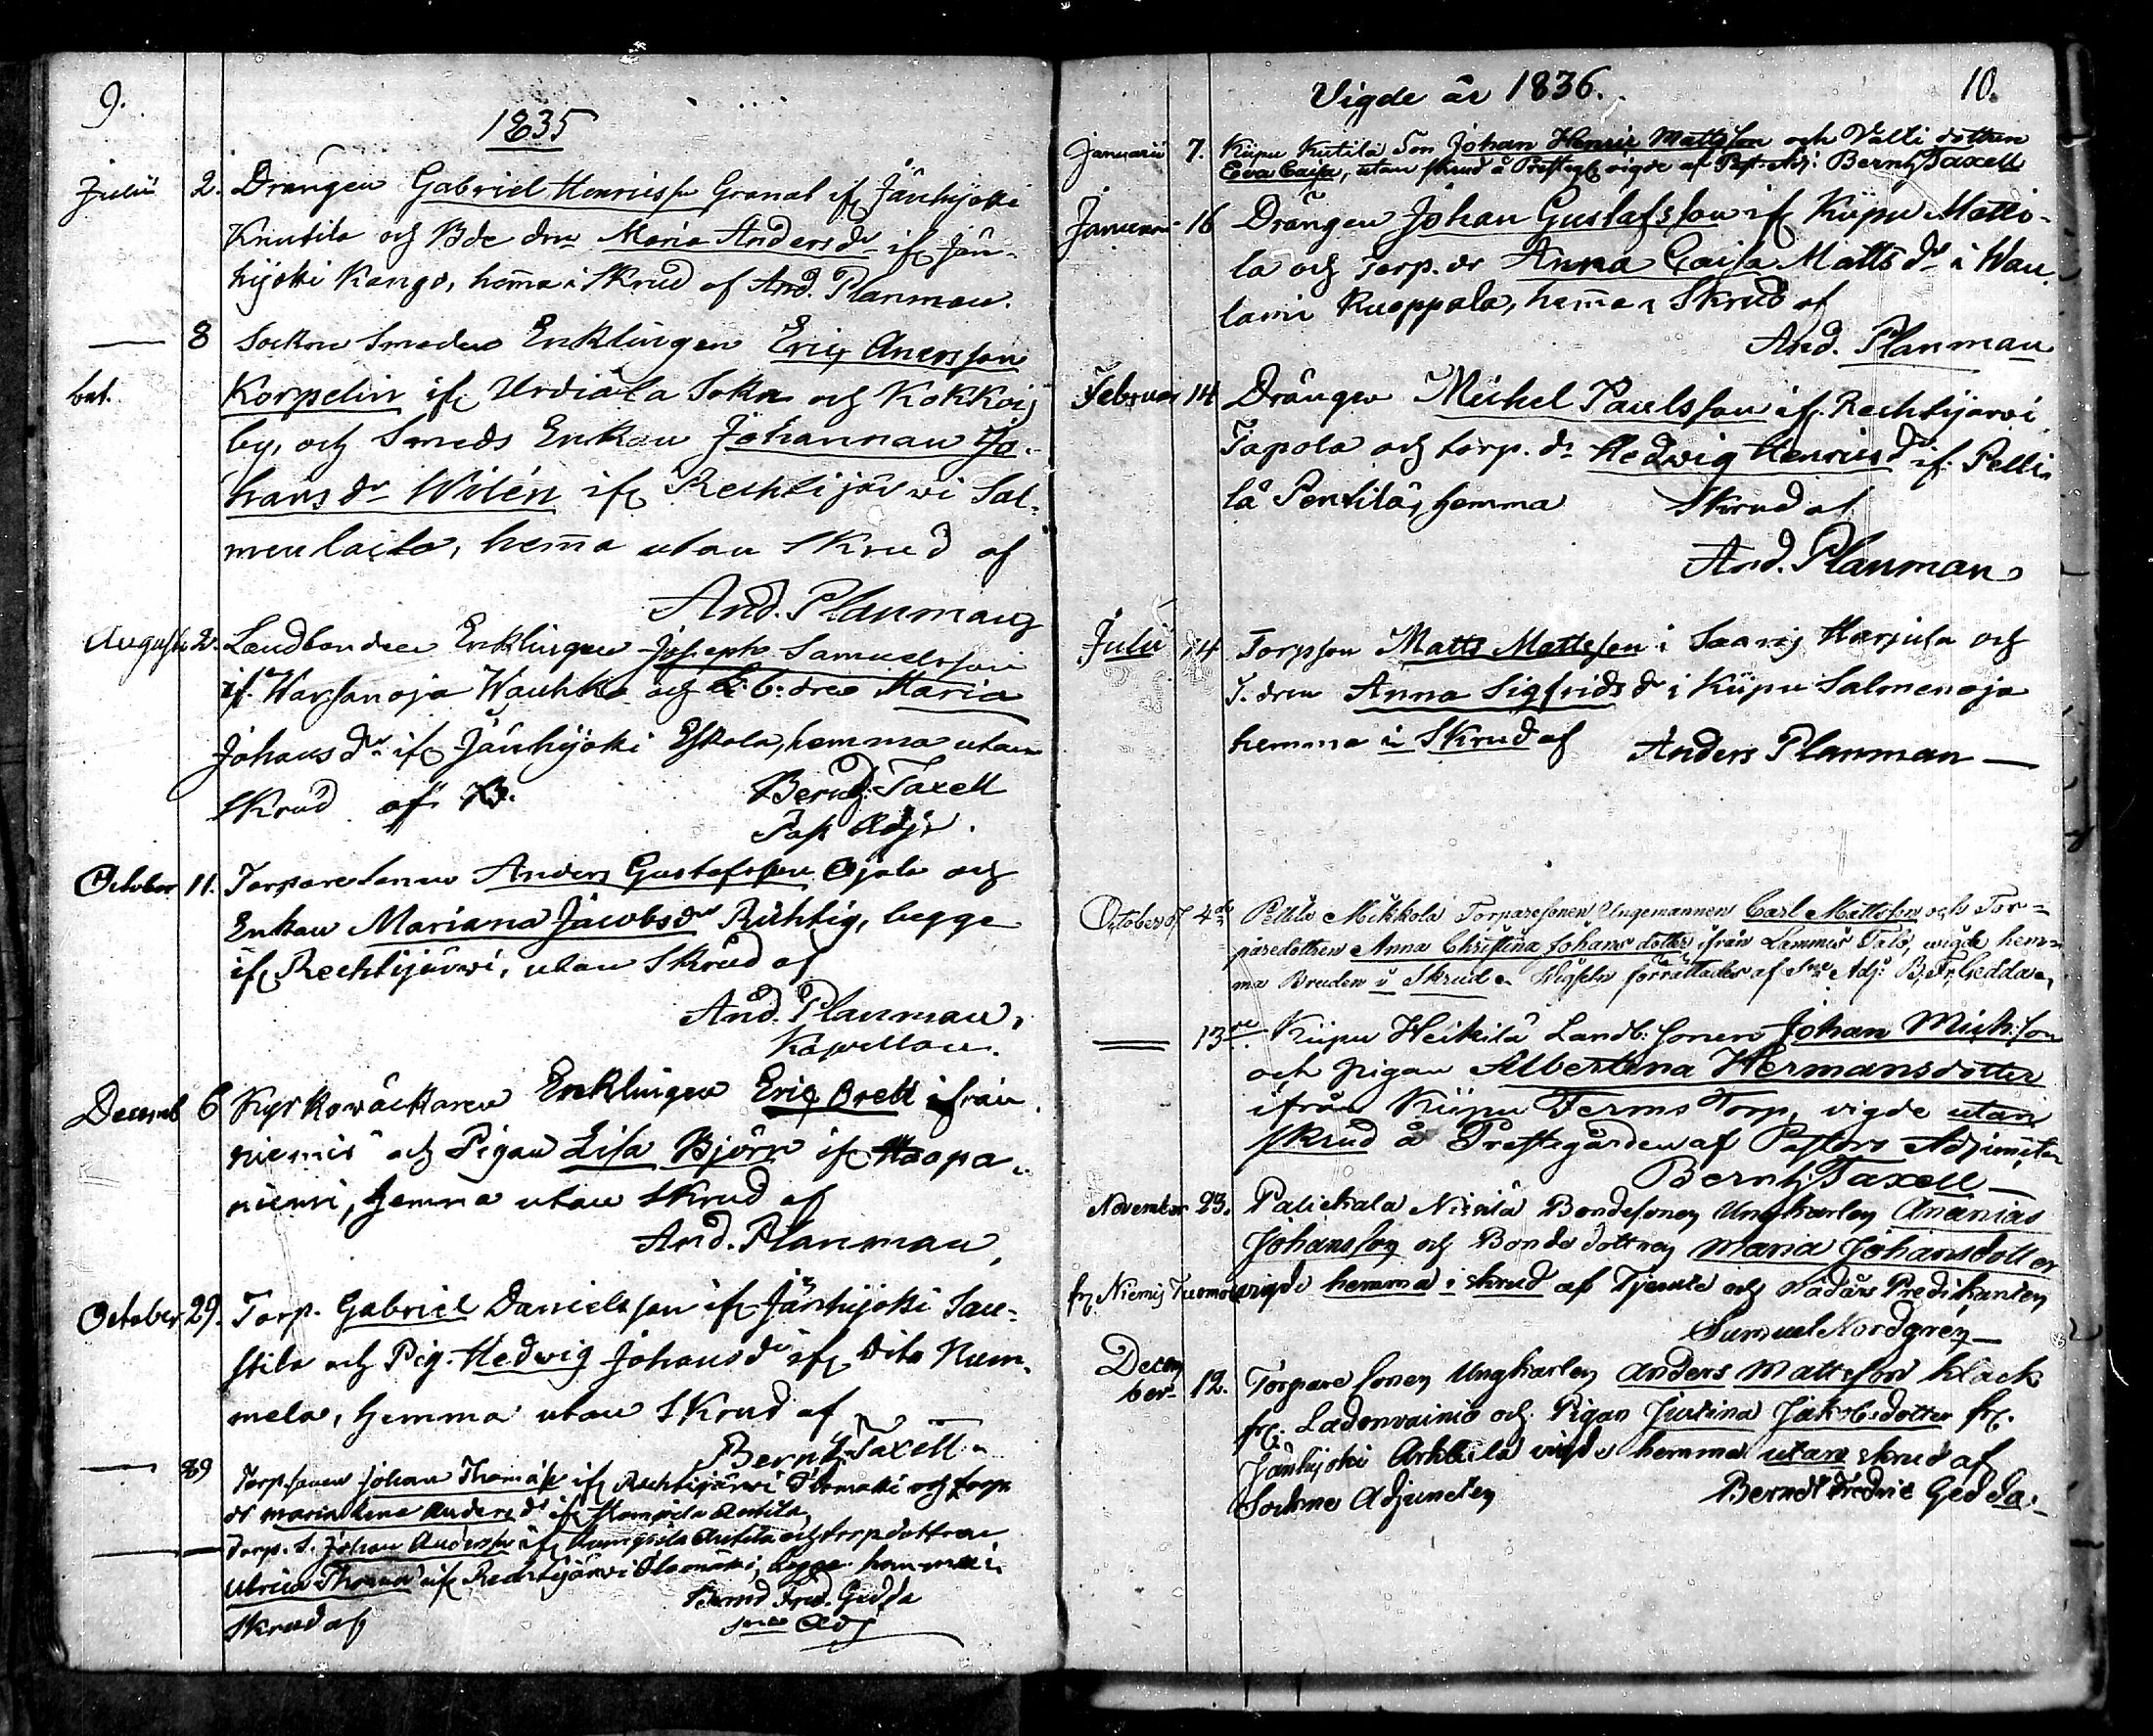 9.
1835
Julii 2. Drängen Gabriel Henricsson Granat ifr Jänhijoki
Knutila och Bde drn Maria Andersdr ifr Jän-
hijoki Kango, hem̄a i Skrud af And. Planman.
— 8 Sockne Smeden Enklingen Eric Anersson
bet. Korpelin ifr Urdiala Sokn och Kokkois
by, och Smeds Enkan Johannan Jo-
hansdr Wilén ifr Rechtijärwi Sal-
menlaito, hem̄a utan Skrud af
And. Planman
Augusti 2. Landbonden Enklingen Joseph Samuelsson
ifr Warsanoja Wauhko och L.b: dren Maria
Johansdr ifr Jänhijoki Eskola, hemma utan
Skrud af Bernh. Taxell
Past. Adj:
October 11. Torparesonen Anders Gustafsson Ojala och
Enkan Mariana Jacobsdr Richtig, begge
ifr Rechtijärwi, utan Skrud af
And. Planman,
Kapellan.
Decemb 6 Kyrkowäktaren Enklingen Eric Orell ifrån
niemis och Pigan Lisa Björn ifr Haapa-
niemi, hemma utan Skrud af
And. Planman,
October 29. Torp. Gabriel Danielsson ifr Jänhijoki Sau-
stila och Pig. Hedwig Johansdr ifr Dito Num-
mela, hemma utan Skrud af
Bernh. Taxell
— 29 Torp.sonen Johan Thomass ifr Rechtijärwi Ilomäki och torp
dr Maria Lena Andersdr ifr Humppila Antila,
— Torp. S. Johan Andersson ifr Humppila Antila och torpdottren
Ulrica Thomasd ifr Rechtijärwi Ilomäki, begge hemma i
Skrud af Bernd Fred. Gedda
Sne Adj
Vigde år 1836. 10.
Januarii 7. Kiipu Kutila Son Johan Henric Mattsson och Välli dottren
Eeva Caisa, utan skrud å Prästeg. vigde af Past. Adj: Bernh. Taxell
Januari 16 Drängen Johan Gustafsson ifr Kiipu Matti-
la och Torp. dr Anna Caisa Matts dr i Wau-
lami Kuoppala, hem̄a i Skrud af
And. Planman
Februar 14 Drängen Michel Paulsson ifr Rechtijärwi
Tapola och torp. dr Hedwig Henricsd ifr Pelli-
lä Pentilä, hemma Skrud af
And. Planman
Julii 14 Torpson Matts Mattsson i Saaris Harjula och
T. dren Anna Sigfridsdr i Kiipu Salmenoja
hemma i Skrud af Anders Planman —
October d 4de Pellilä Mikkola Torparesonen Ungemannen Carl Mattsson och Tor-
paredottren Anna Christina Johans dotter ifrån Lammis Talo, wigde hem-
ma Bruden i Skrud. Wigseln förrättades af Sne Adj: B. Fr. Gedda.
— 13de. Kiipu Heikilä Landb: sonen Johan Mich:son
och pigan Albertina Hermansdotter
ifrån Kiipu Ferms Torp, vigde utan
skrud å Prestegården af Pastors Adjuncten
Bernh. Taxell —
November 23. Palickala Nixilä Bondesonen Ungkarlen Ananias
Johansson och Bonde dottren Maria Johansdotter
fr. Niemis Tuomola wigde hemma i skrud af Tjenste och Nådårs Predikanten
Samuel Nordgren —
Decem
ber 12. Torpare Sonen Ungkarlen Anders Mattsson Klack
fr. Ladonvainio och Pigan Justina Jakobsdotter fr.
Jänhijoki Arkkila vigde hemma utan skrud af
Sockne Adjuncten Berndt Fredric Gedda.